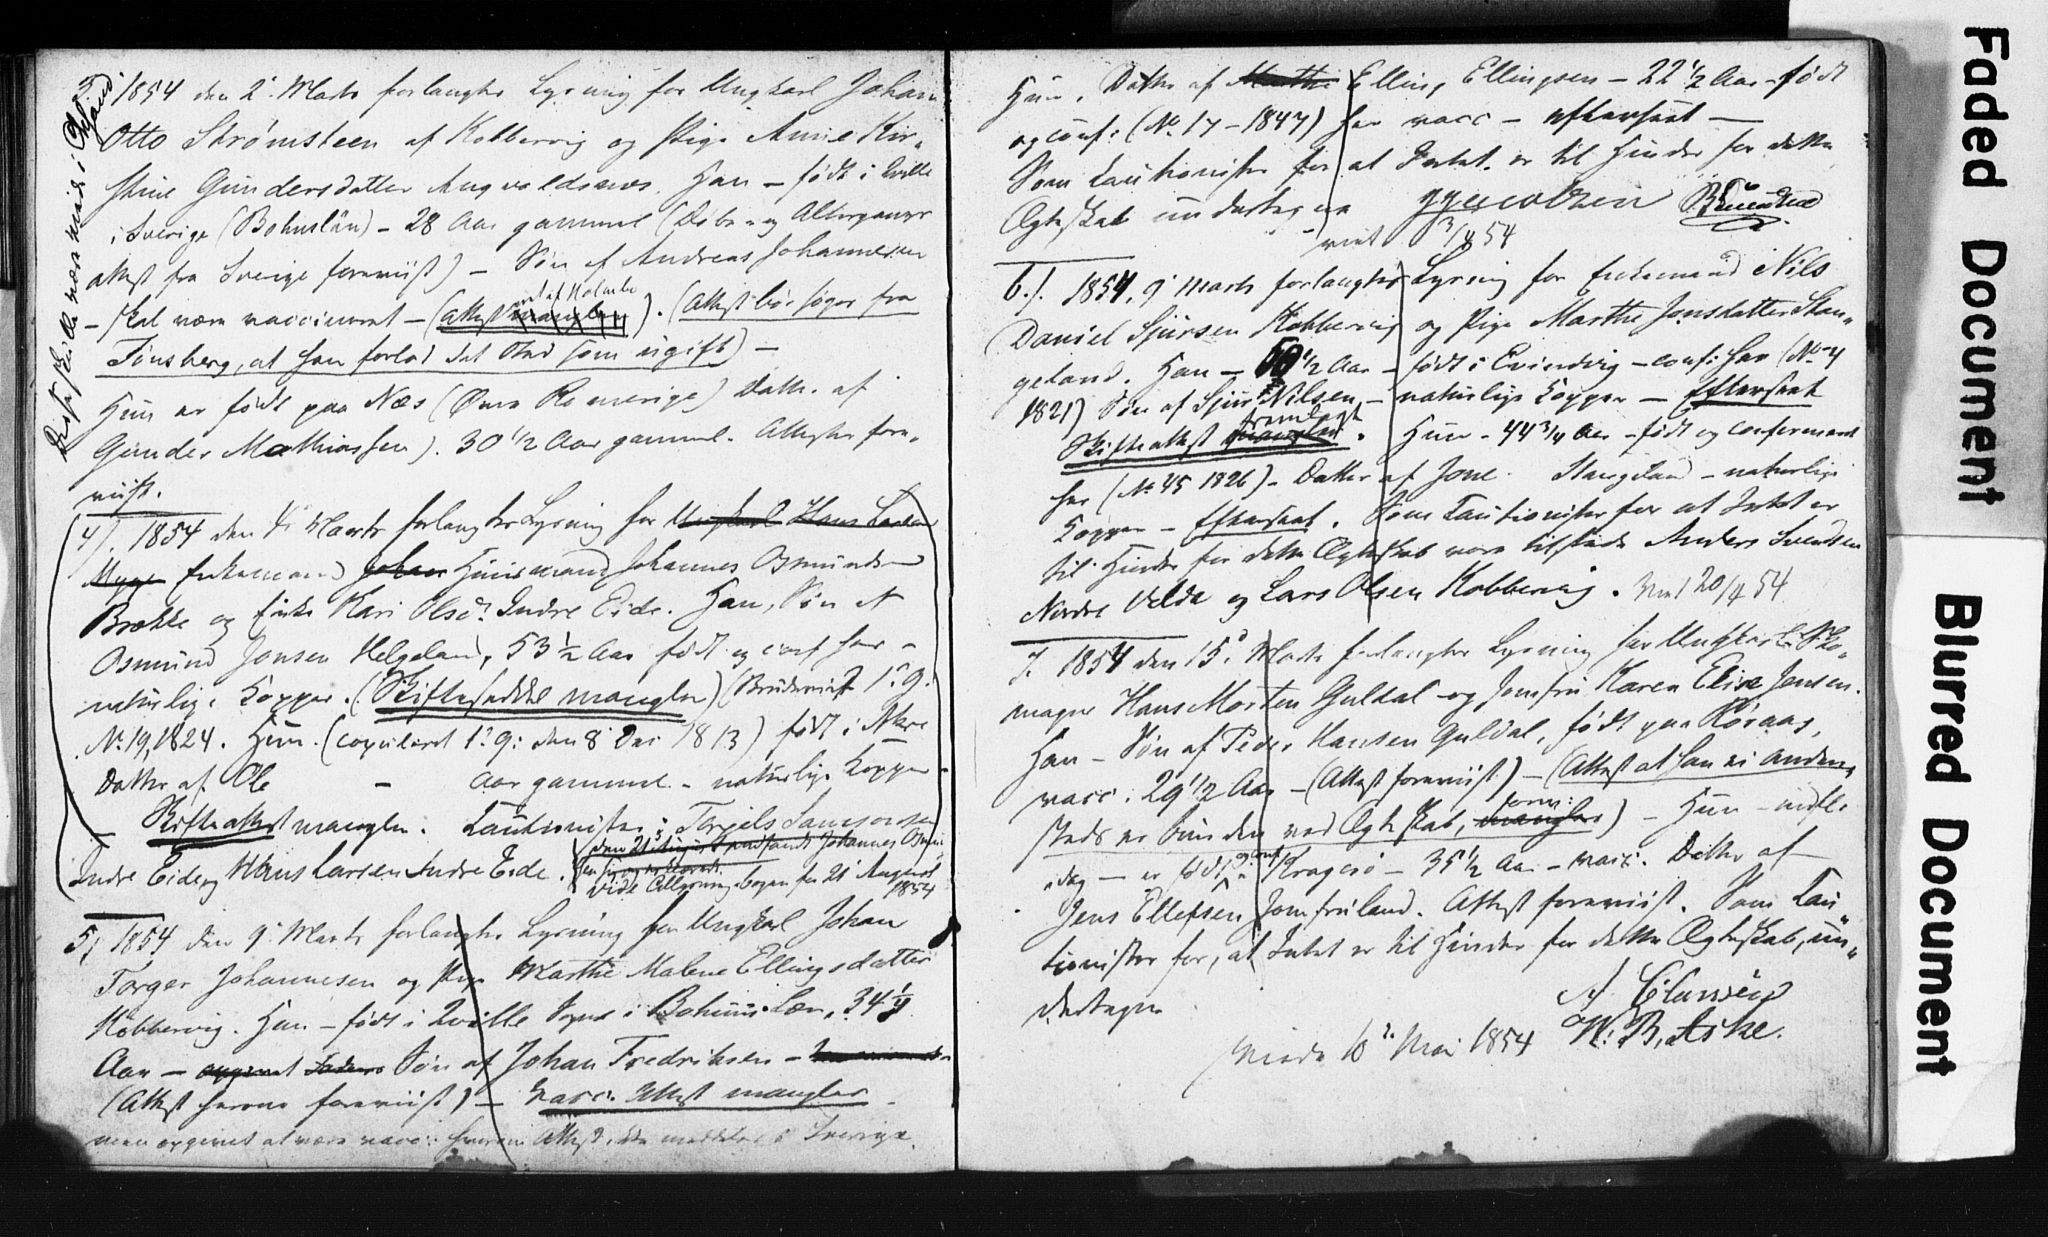 3. 1854 den 2. Marts forlangtes Lysning for Ungkarl Johan
Otto Strømsteen af Kobbervig og Pige Anne Kir„
stine Gundersdatter Augvaldsnæs. Han – født i Qville
i Sverige (Bohuslän) – 28 Aar gammel (Døbe- og Altergangs
attest fra Sverige foreviist) – Søn af Andreas Johannessen
– skal være vaccineret – (Attest ). (Attest bør søges fra
Tønsberg, at han forlod det Sted som ugift) –
Hun er født paa Næs (Øvre Romerige) Datter af
Gunder Mathiassen). 30 1/2 Aar gammel. Attester fore„
viist.
4). 1854 den Marts forlangtes Lysning for Ungkarl Hans Larsen
Myge Enkemand Johan Huusmand Johannes Osmundsen
Brække og Enke Kari Olsd. Indre Eide. Han, Søn af
Osmund Jonsen Helgeland, 53 1/2 Aar født og conf. her –
naturlige Kopper. (Skifteseddel mangler) (Brudeviet 1. g.
No 19, 1824. Hun. (copuleret 1. g: den 8 Dec 1813) født i Akre
Datter af Ole – Aar gammel – naturlige Kopper.
Skifteattest mangler. Cautionister: Torgils Samsonsen
Indre Eide og Hans Larsen Indre Eide.
vide Lysning bogen for 21 August
1854
5) 1854 den 9. Marts forlangtes Lysning for Ungkarl Johan
Torger Johannesen og Pige Marthe Malene Ellingsdatter
Kobbervig. Han – født i Qville Sogn i Bohuus Læn, 34 1/4
Aar – opgivet Faders Søn af Johan Fredriksen –
(Attest herom foreviist) – vacc. Attest mangler –
men opgivet at være vacc: hvorom Attest ei meddeles i Sverige.
Hun, Datter af Marthe Elling Ellingsen – 22 1/2 Aar – født
og conf: (No 17 – 1847) her vacc – efterseet –
Som Cautionister for at Intet er til Hinder for dette
Ægteskab undertegne
viet 3/4 54
6.). 1854, 9 Marts forlangtes Lysning for Enkemand Nils
Daniel Sjursen Kobbervig og Pige Marthe Jonsdatter Stan„
geland. Han – 50 1/2 Aar – født i Evindvig – conf: her (No 4
1821) Søn af Sjur Nilsen, – naturlige Kopper – Efterseet
Skifteattest mangler fremlagt. Hun – 44 3/4 Aar – født og confirmeret
her (No 45 1826) – Datter af Jone Stangeland – naturlige
Kopper – Efterseet. Som Cautionister for at Intet er
til Hinder for dette Ægteskab vare tilstede Anders Svendsen
Nordre Velde og Lars Olsen Kobbervig. Viet 20/4 54
7. 1854 den 15. Marts forlangtes Lysning for Ungkarl Sko„
mager Hans Morten Guldal og Jomfru Karen Elise Jensen.
Han – Søn af Peder Hansen Guldal, født paa Røraas,
vacc. 29 1/2 Aar – (Attest foreviist) – (Attest at han ei anden„
steds er bunden ved Ægteskab, mangler) – Hun – indl:
idag – er født og conf i Kragerø – 35 1/2 Aar – vacc. Datter af
Jens Ellefsen Jomfruland. Attest foreviist. Som Cau„
tionister for, at Intet er til Hinder for dette Ægteskab, un„
dertegne
A. Clausen
W. B. Aske.
viede 10. Mai 1854
Faded Document
Blurred Document